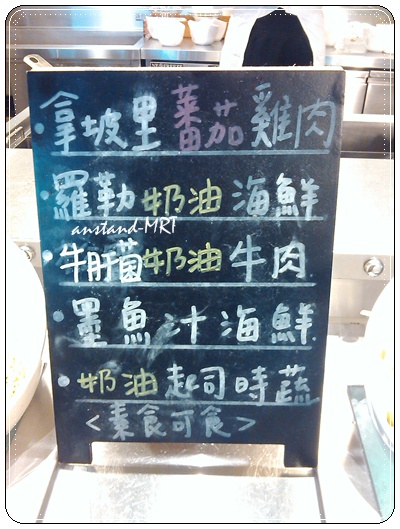 ·拿坡里蕃茄雞肉
·羅勒奶油海鮮
anstand-MRT
·牛肝菌奶油牛肉
·墨魚汁海鮮
·奶油起司時蔬
<素食可食>